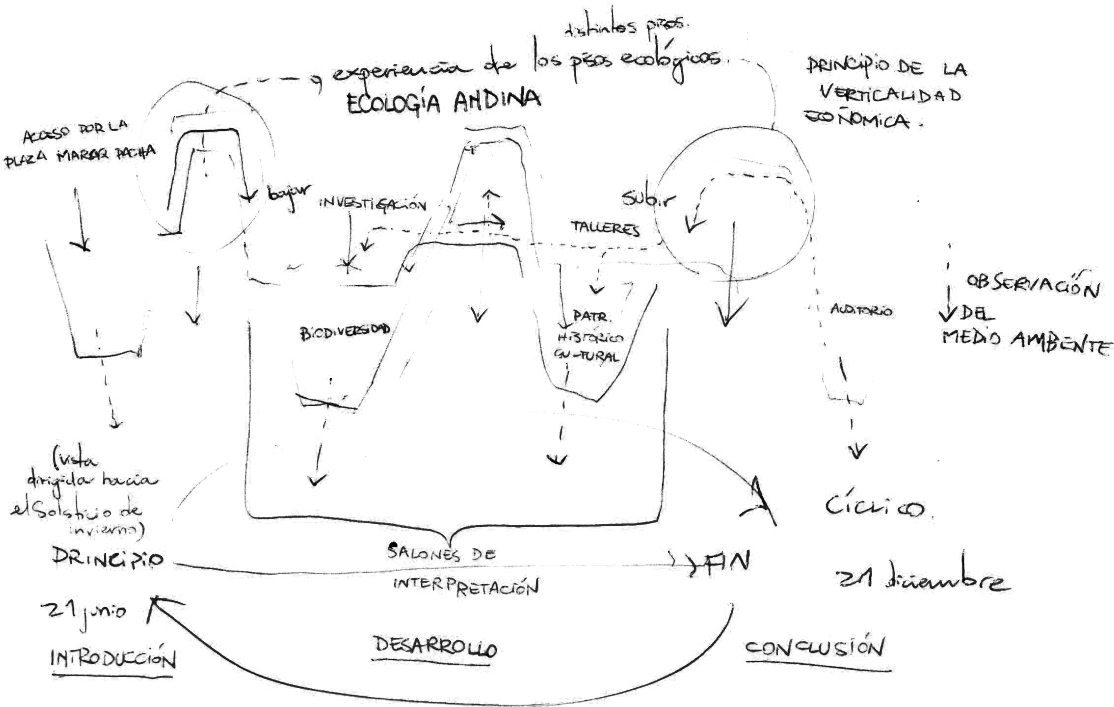 distintos pisos.
experiencia de los pisos ecológicos.
ECOLOGÍA ANDINA
PRINCIPIO DE LA
VERTICALIDAD
ECOÑOMICA.
ACCESO POR LA
PLAZA PACHA
bajar
INVESTIGACIÓN
subir
TALLERES
OBSERVACIÓN
DEL
MEDIO AMBIENTE
AUDITORIO
BIODIVERSIDAD
PATR.
HISTÓRICO
CULTURAL
(vista
dirigida hacia
el Solsticio de
invierno)
CÍCLICO.
PRINCIPIO
SALONES DE
INTERPRETACIÓN
FIN
21 junio
21 diciembre
INTRODUCCIÓN
DESARROLLO
CONCLUSIÓN